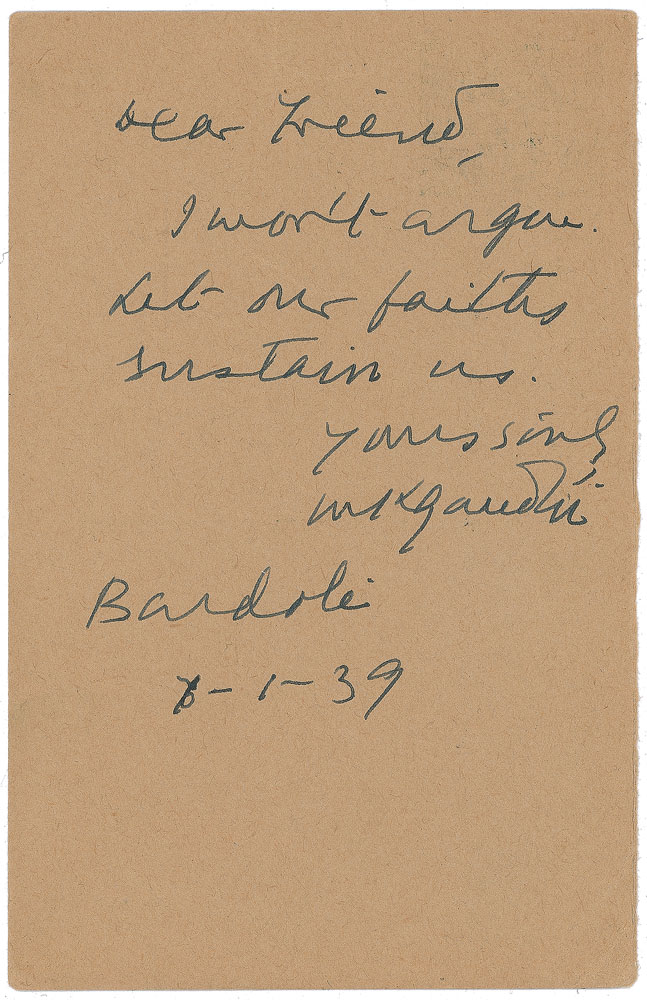 Dear Friend,
I won't argue.
Let our faiths
sustain us.
Yours sinly
MKGandhi
Bardoli
-1-39